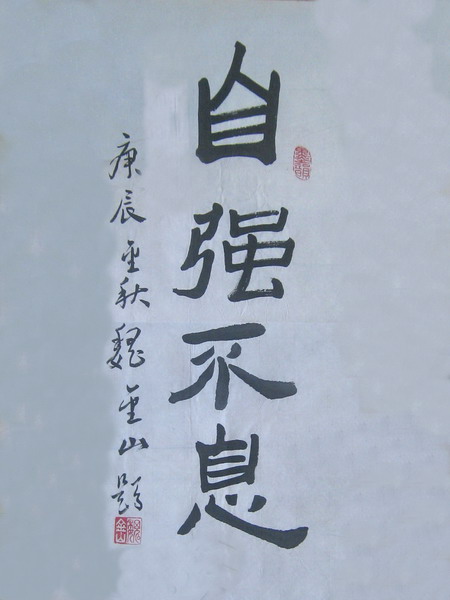 自强不息
庚辰金秋魏金山题